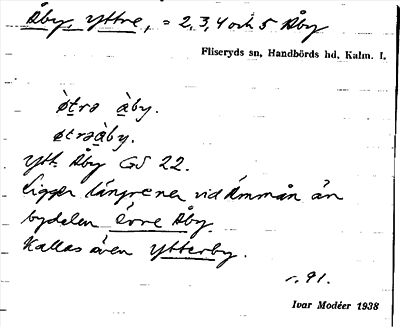 Åby, Yttre, = 2, 3, 4 och 5 Åby
Fliseryds sn, Handbörds hd, Kalm. l.
ø̀trə àby.
øtrəàby.
Ytt. Åby GS 22.
Ligger längre ner vid Ämmån än
bydelen Övre Åby.
Kallas även Ytterby.
r. 91.
Ivar Modéer 1938